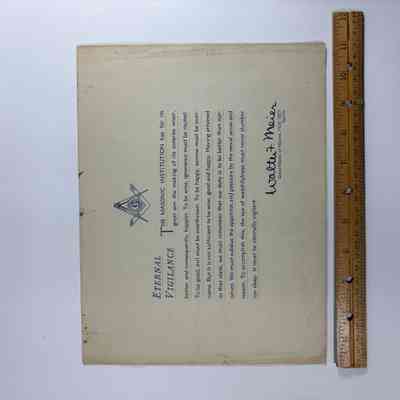 G
ETERNAL
VIGILANCE
THE MASONIC INSTITUTION has for its
great aim the making of its votaries wiser,
better, and consequently, happier. To be wise, ignorance must be routed.
To be good, evil must be overthrown. To be happy, sorrow must be over-
come. But it is not sufficient to be wise, good and happy. Having attained
to that state, we must remember that our duty is to be better than our-
selves. We must subdue the appetites and passions by the moral sense and
reason. To accomplish this, the eye of watchfulness must never slumber
nor sleep. It must be eternally vigilant.
Walter F. Meier